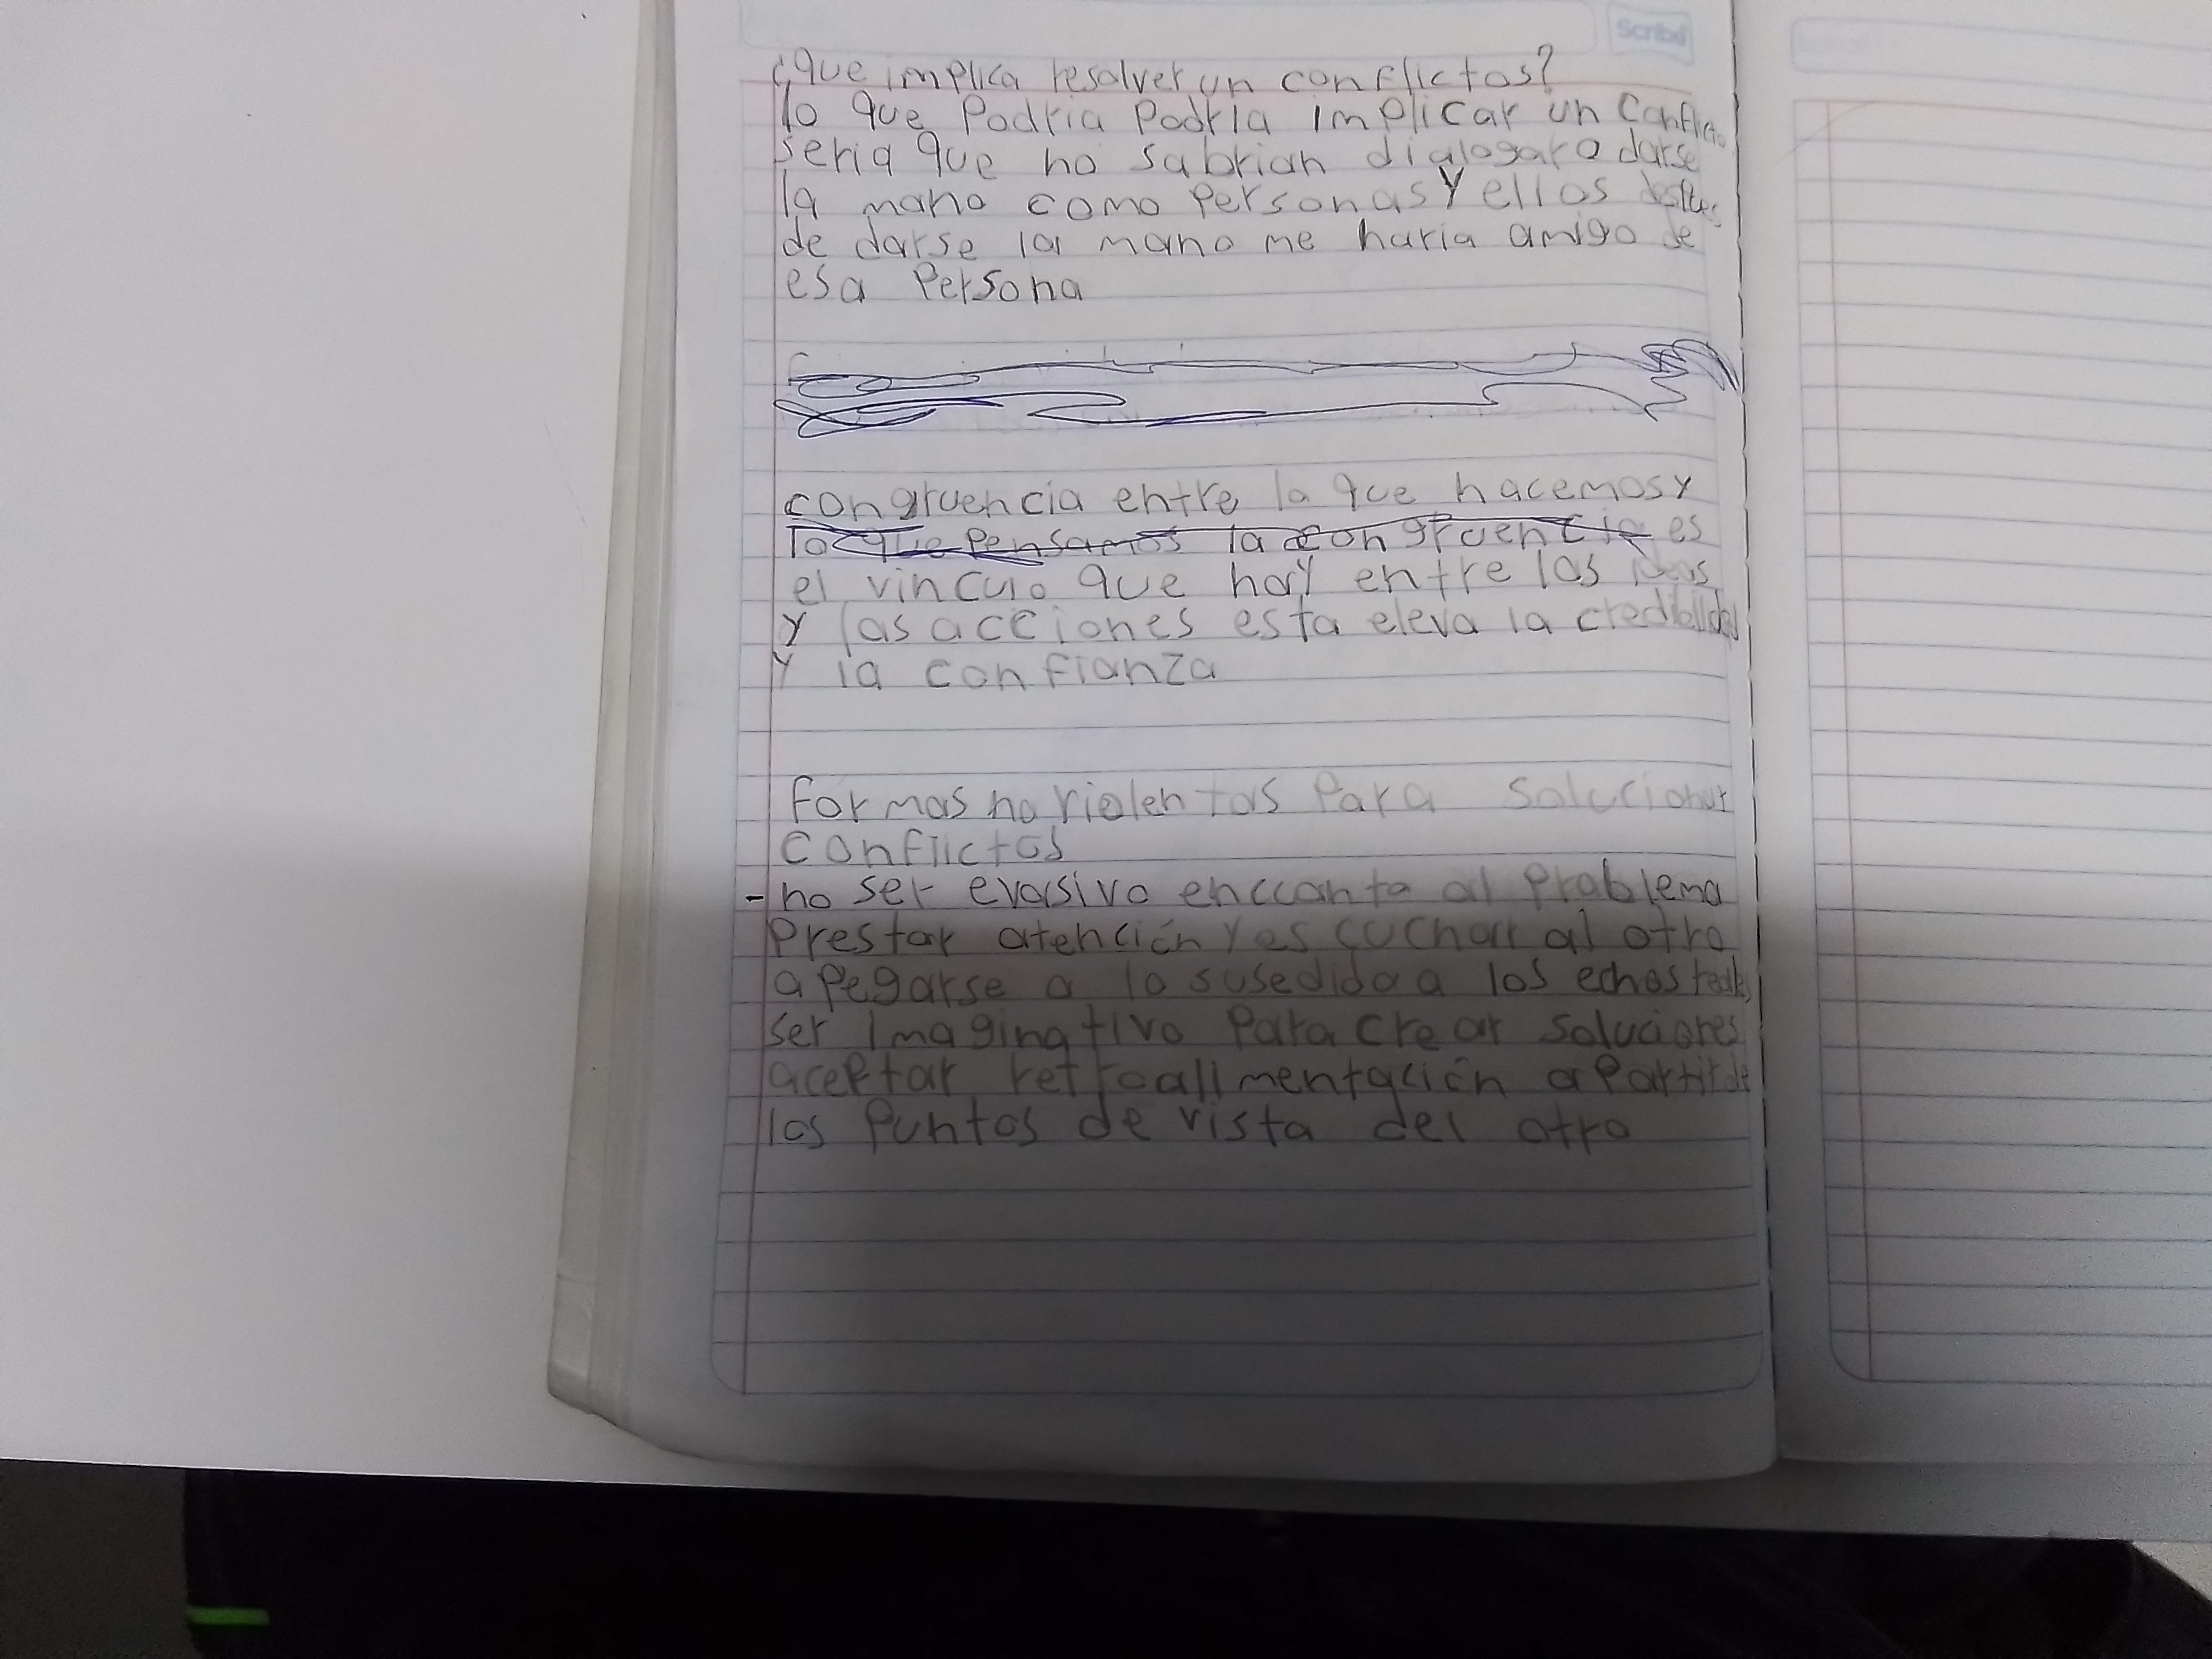 Scribe
¿Que implica resolver un conflictos?
lo que Podria Podria implicar un Conflicto
seria que no sabrian dialogar o darse
la mano como Personas y ellos despues
de darse la mano me haria amigo de
esa Persona
congruencia entre lo que hacemos y
lo que Pensamos la congruencia es
el vinculo que hay entre las ideas
y las acciones esta eleva la credibilidad
y la confianza
formas no violentas Para solucionar
conflictos
- no ser evasivo enccanto al Problema
Prestar atención y escuchar al otro
aPegarse a lo susedido a los echos reales
ser imaginativo Para crear soluciones
acePtar retroalimentación a Partir de
los Puntos de vista del otro